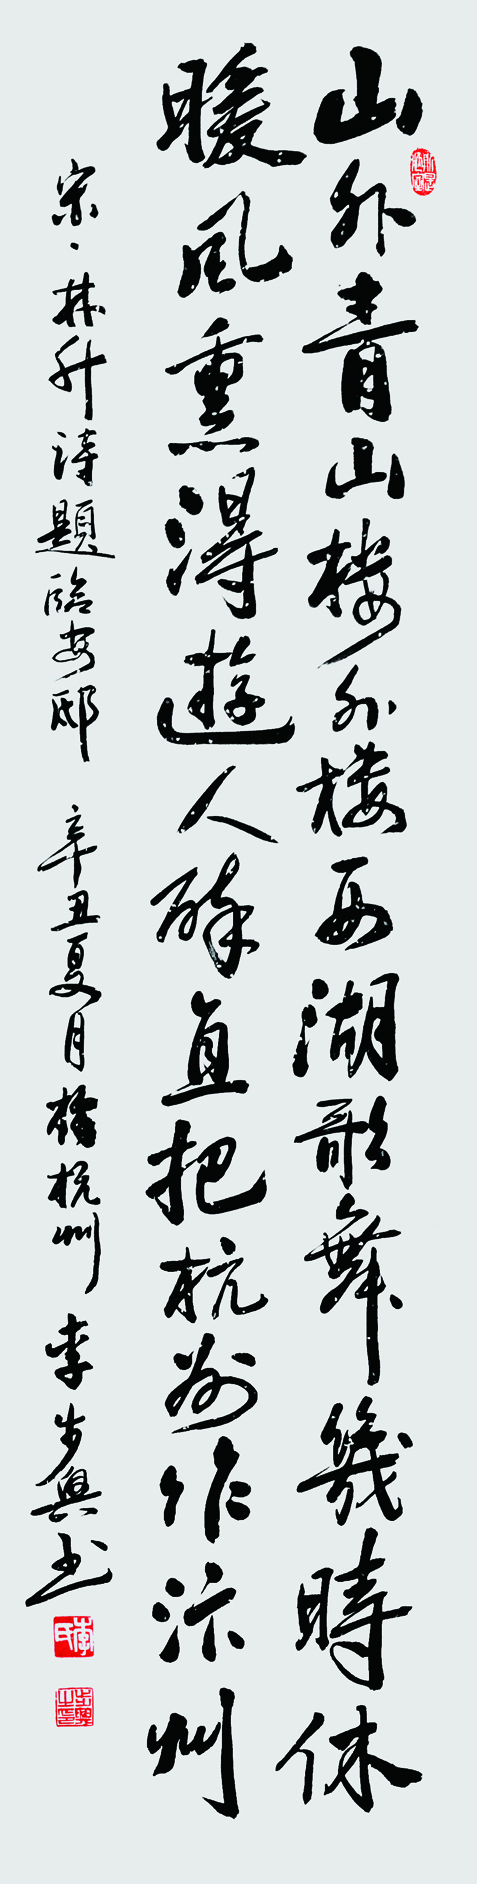 山外青山楼外楼西湖歌舞幾時休
暖風熏得遊人醉直把杭州作汴州
宋、林升詩題臨安邸 辛丑夏月 杭州 李步興书
李氏